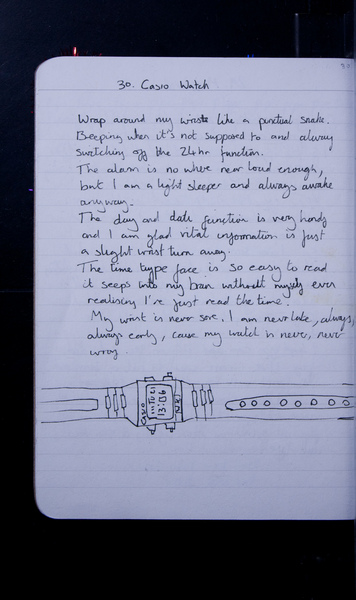 30. Casio Watch
Wrap around my wriste like a punctual snake.
Beeping when it's not supposed to and always
switching off the 24hr function.
The alarm is no where near loud enough,
but I am a light sleeper and always awake
anyway.
The day and date function is very handy
and I am glad vital information is just
a slight wrist turn away.
The time type face is so easy to read
it seeps into my brain without myself even
realising I've just read the time.
My wrist is never sore, I am never late, always,
always early, cause my watch is never, never
wrong.
CASIO
13:06